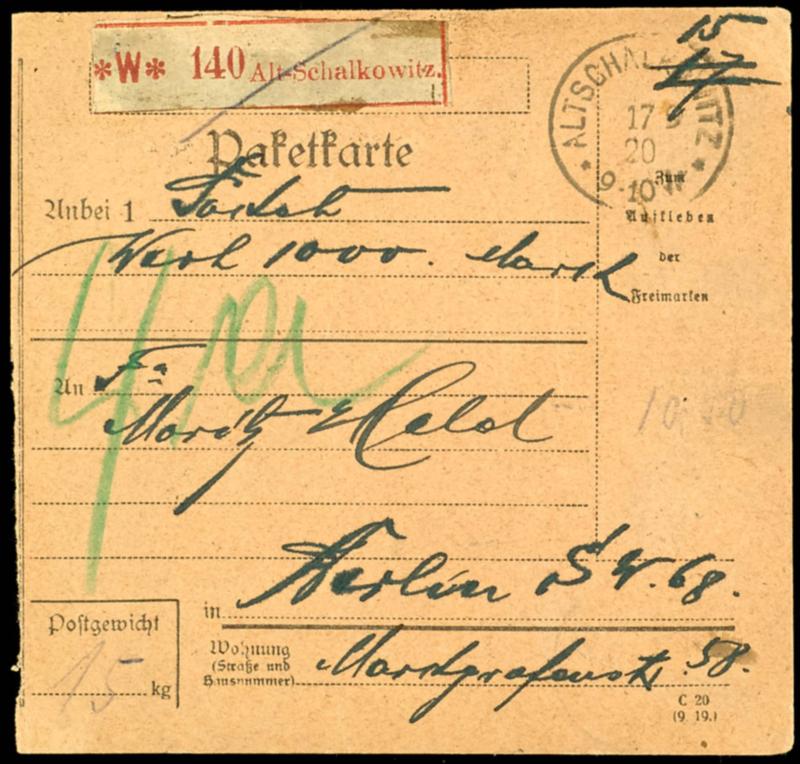 *W* 140 Alt-Schalkowitz.
15
17
ALTSCHALKOWITZ
17
20
* 9-10 V *
Paketkarte
Zum
Aufkleben
der
Freimarken
Anbei 1
Wert 1000. Mark
An Fa
Moritz Held
in Berlin S.W. 68.
Postgewicht
15 kg
Wohnung
(Straße und
Hausnummer) Markgrafenstr. 58.
C 20
(9. 19.)